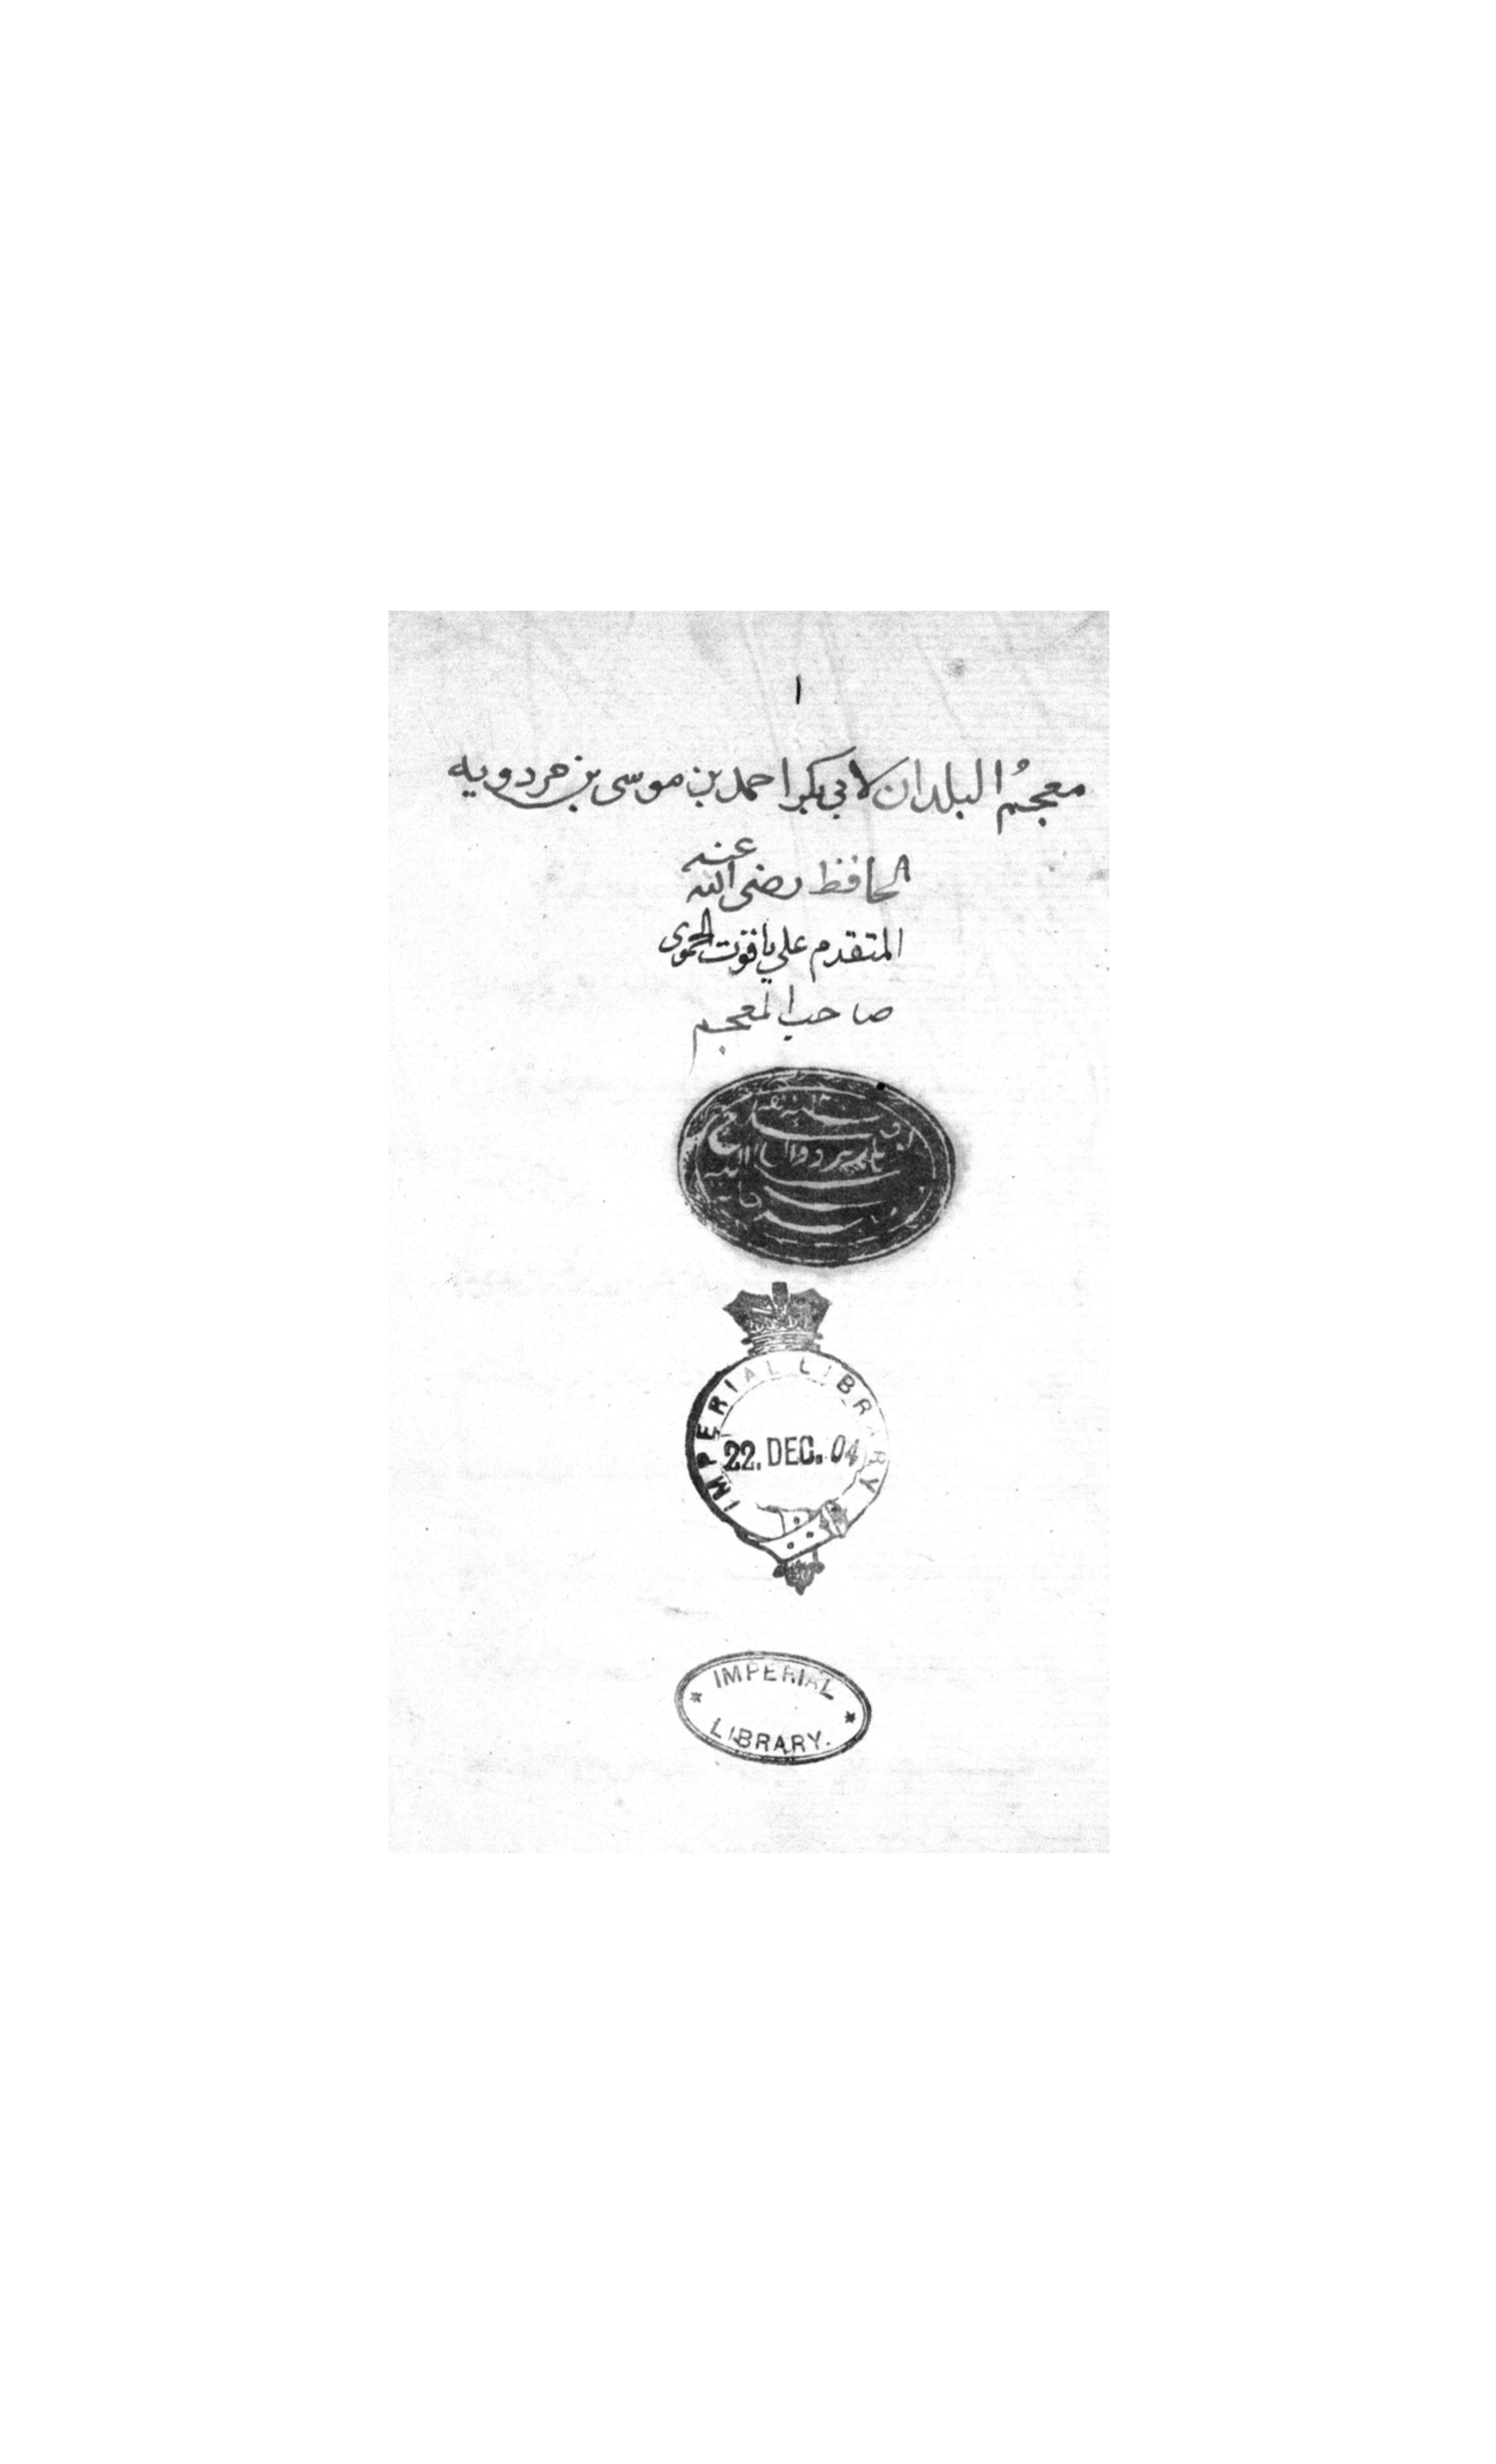 ١
معجمُ البلدان لابي بكر احمد بن موسى بن مردويه
الحافظ رضى الله عنه
المتقدم علي ياقوت الحموى
صاحب المعجم
IMPERIAL LIBRARY
22. DEC. 04
IMPERIAL
LIBRARY.